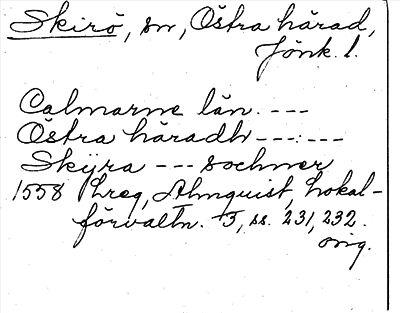 Skirö, sn, Östra härad,
Jönk. l.
Calmarne län. ---
Östra häradh ---:---
Skÿra --- sochner
1558 hreg, Almquist, Lokal-
förvaltn. I, ss. 231, 232.
orig.